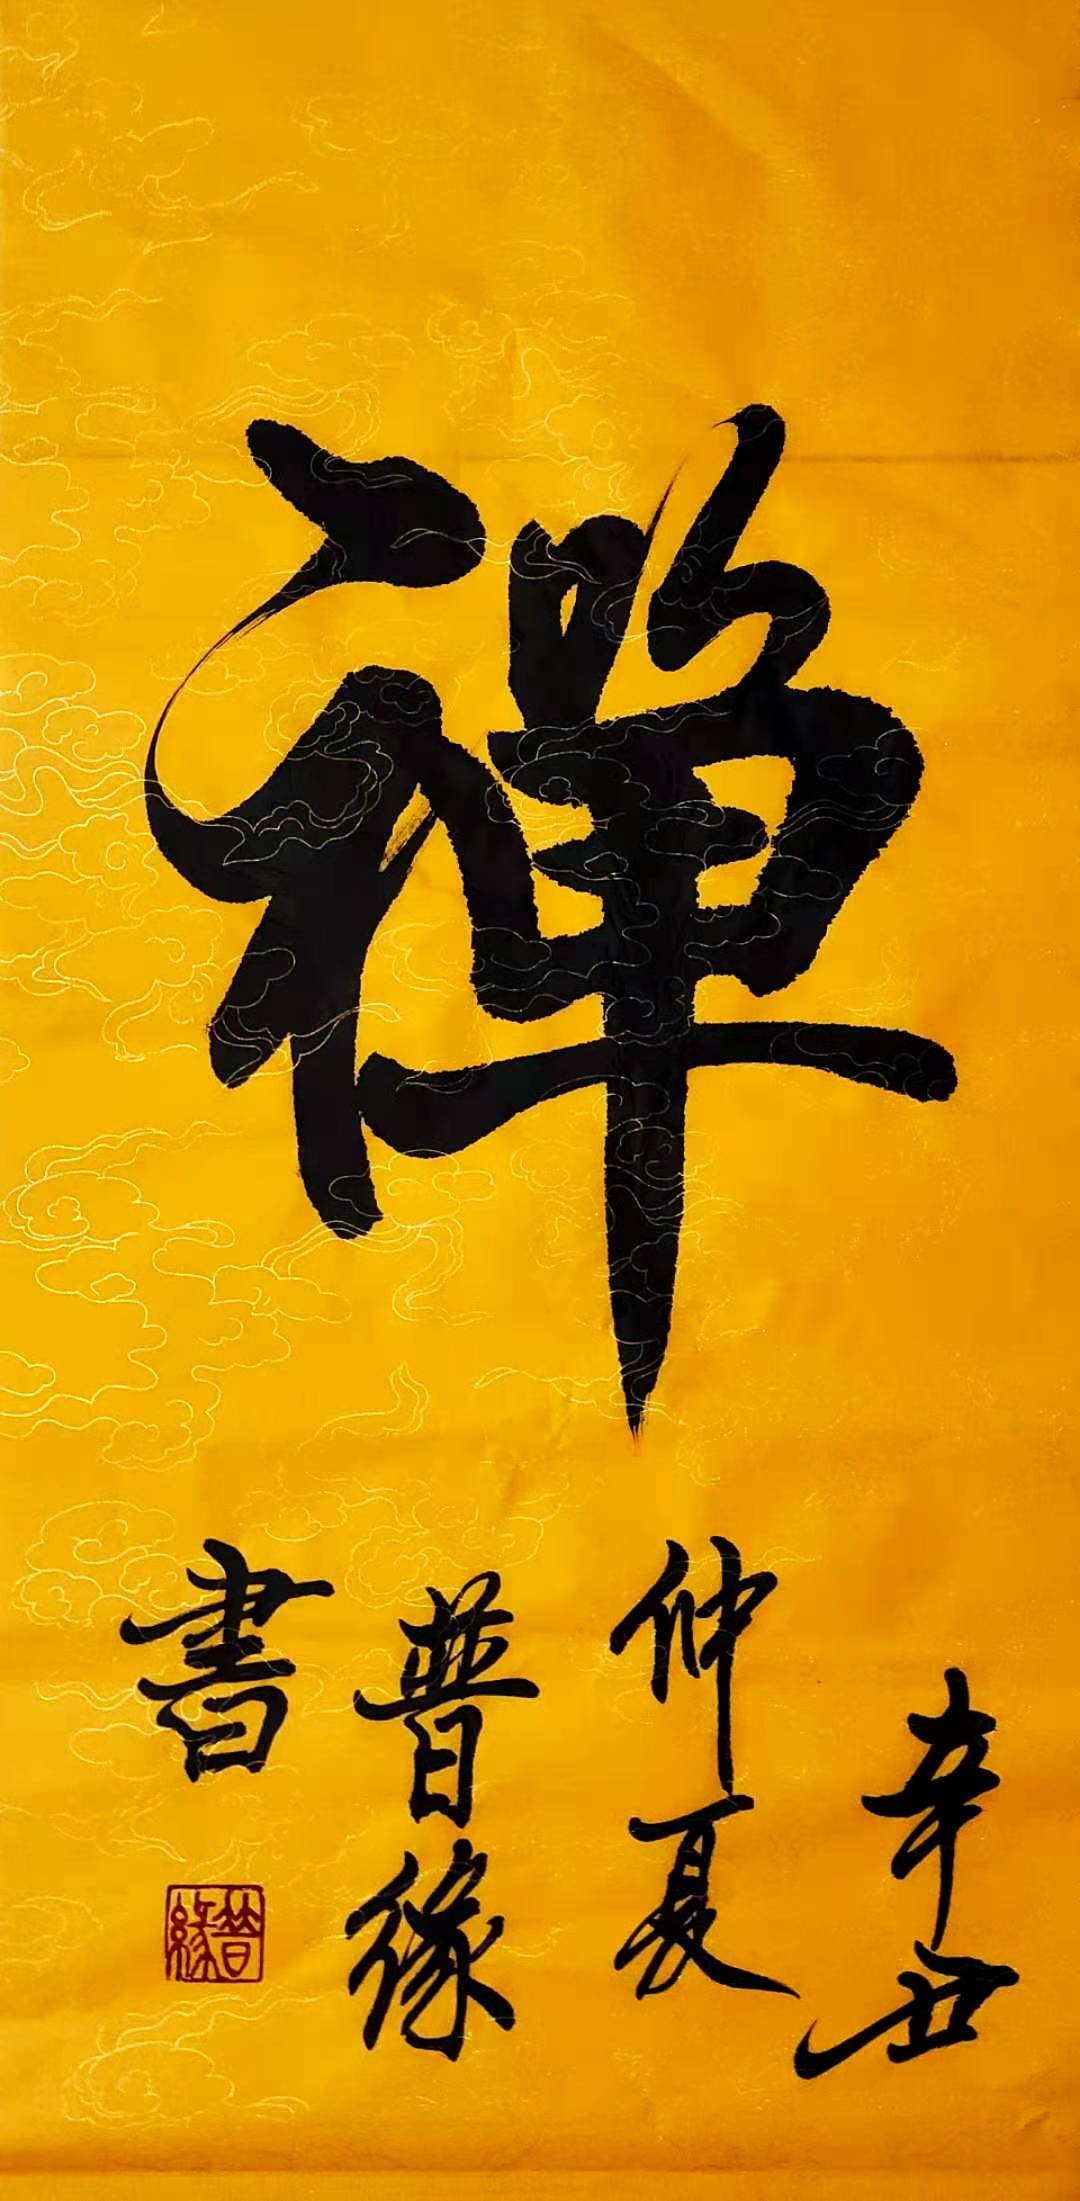 禪
辛丑
仲夏
普缘
書
普緣